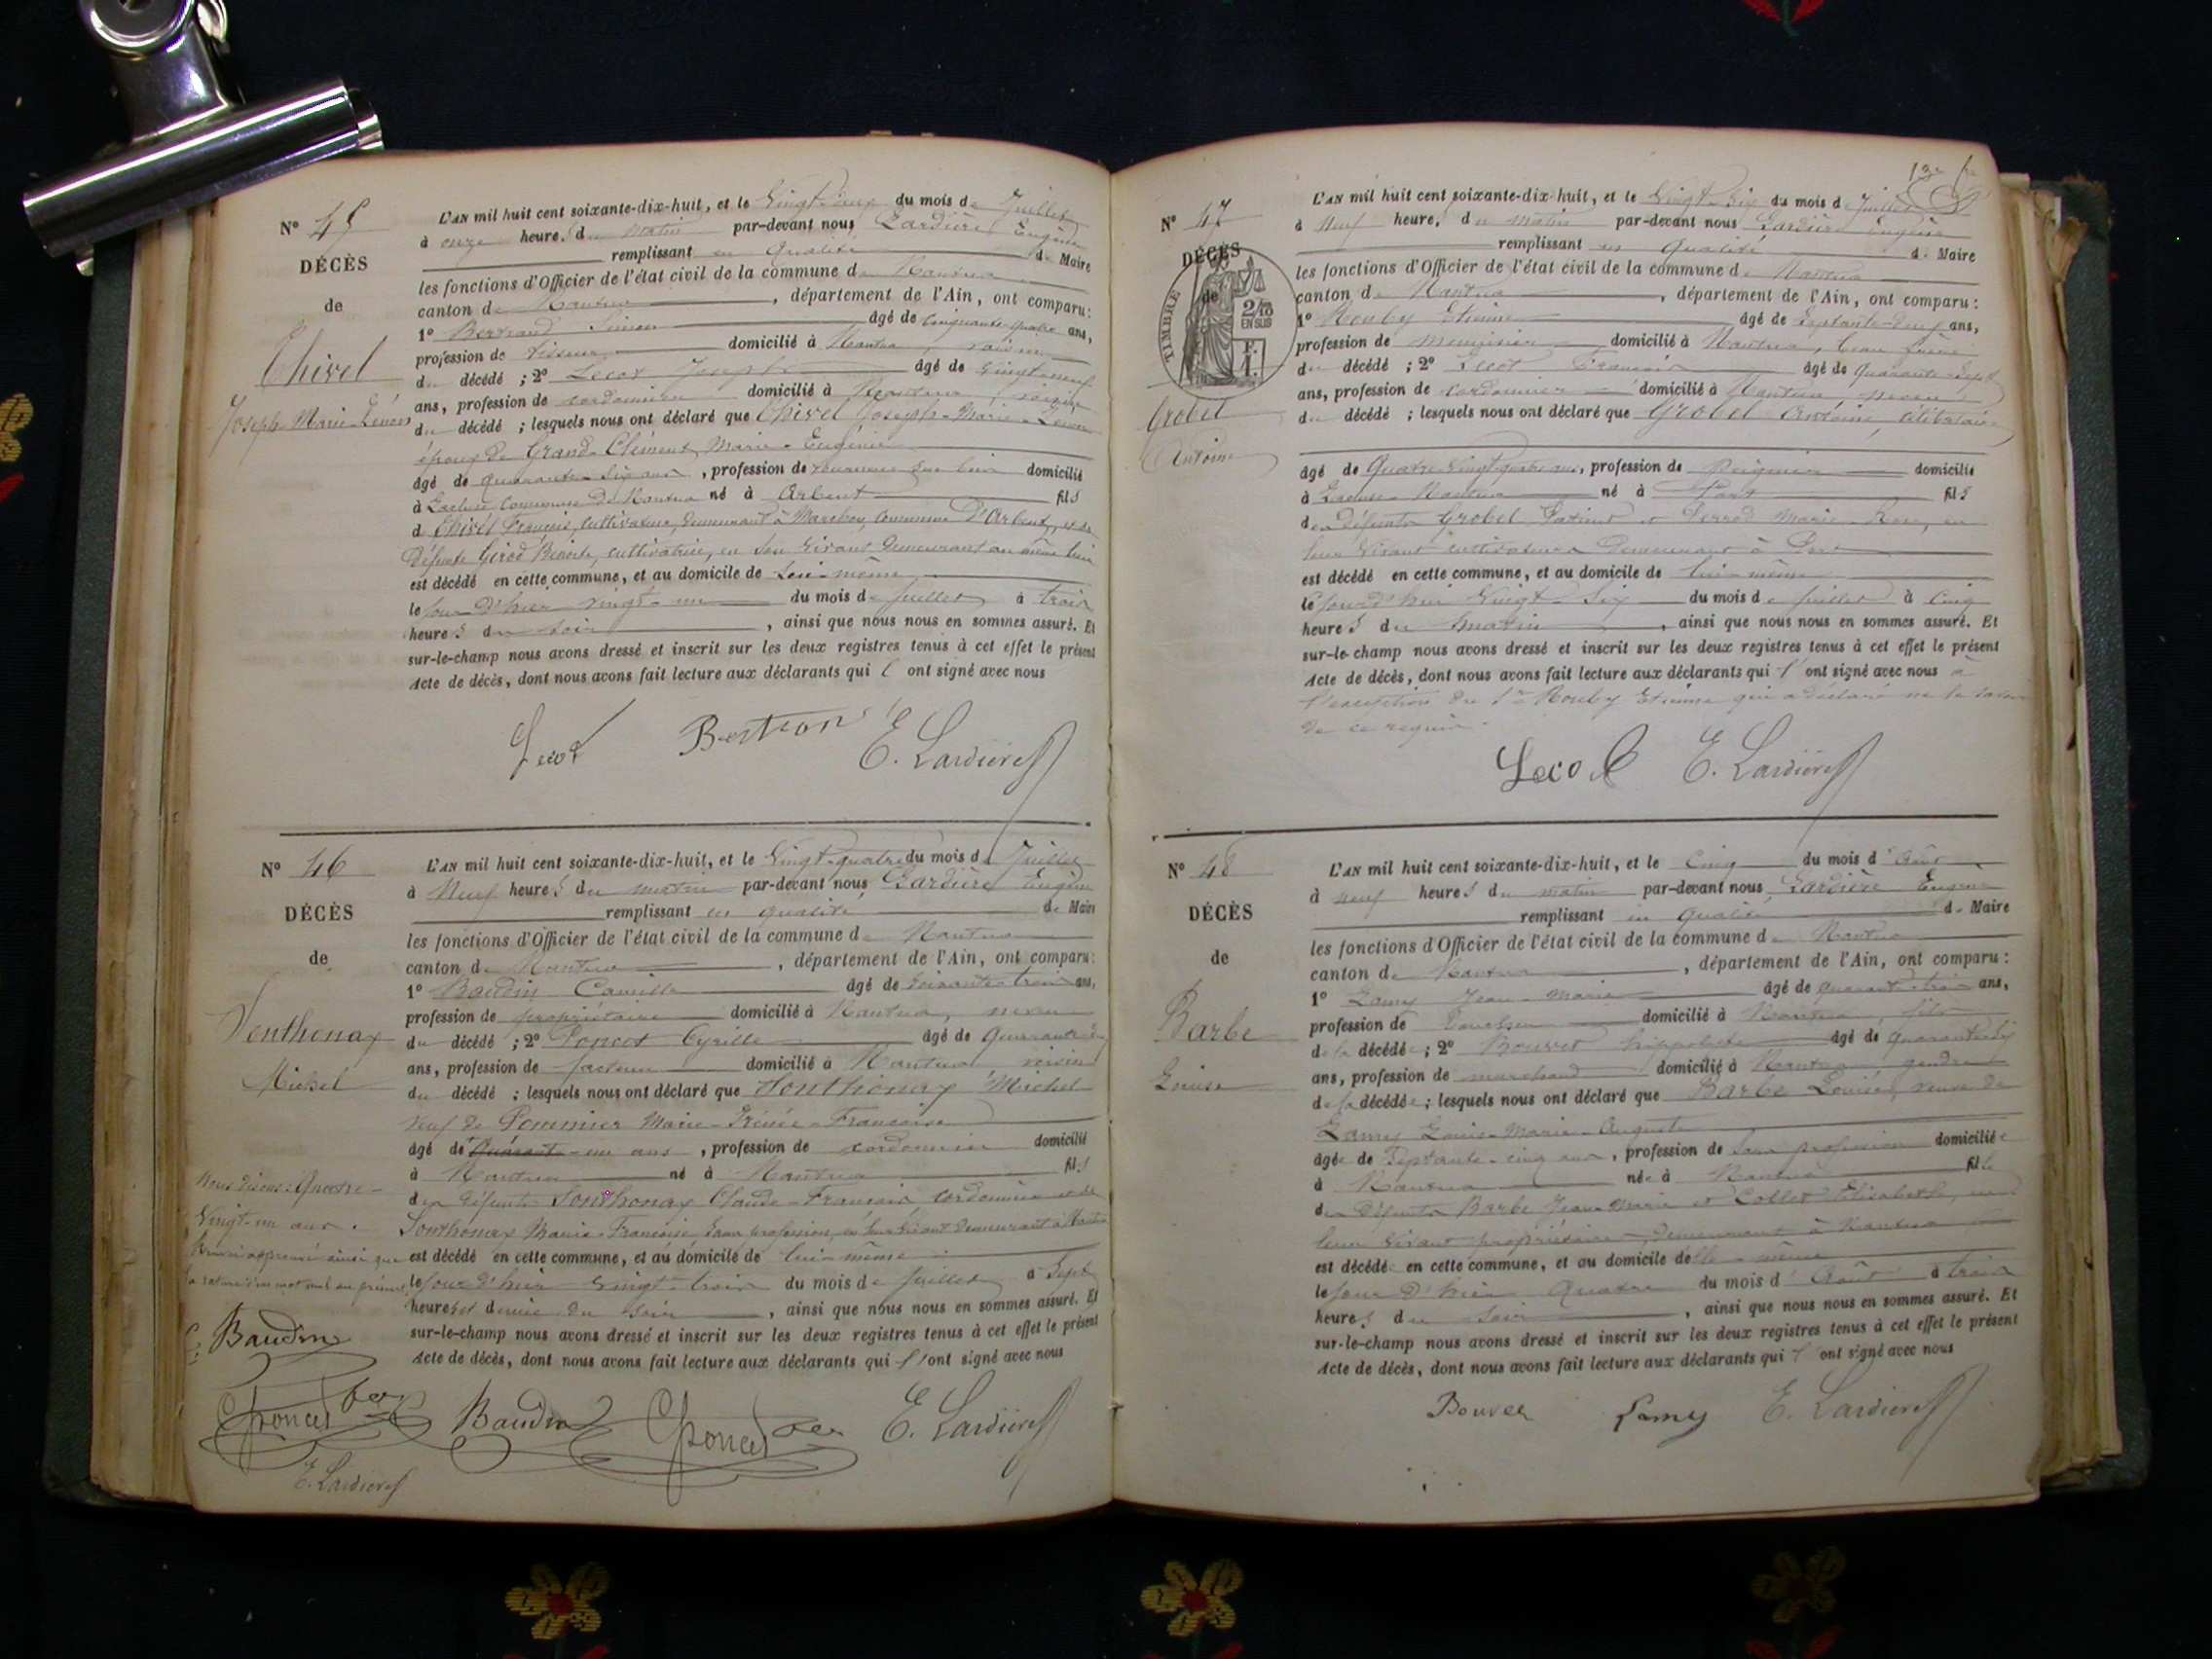 N° 45
DÉCÈS
de
Chivel
Joseph-Marie-
L'AN mil huit cent soixante-dix-huit, et le Vingt-deux du mois de Juillet
à onze heure. du matin par-devant nous Lardière Eugène
remplissant en qualité de Maire
les fonctions d'Officier de l'état civil de la commune de Nantua
canton de Nantua, département de l'Ain, ont comparu:
1° Bertrand Simon âgé de Cinquante-quatre ans,
profession de tisseur domicilié à Nantua, voisin
du décédé ; 2° Lecot Joseph âgé de Vingt-neuf
ans, profession de cordonnier domicilié à Nantua voisin
du décédé ; lesquels nous ont déclaré que Chivel Joseph-Marie-
époux de Grand-Clément Marie-Eugénie
âgé de quarante-six ans, profession de domicilié
à Lacluse commune de Nantua né à Arbent fils
d Chivel François, cultivateur, demeurant à Marchon, commune D'Arbent, et de
Défunte Girod Benoite, cultivatrice, en son vivant demeurant au même lieu
est décédé en cette commune, et au domicile de lui-même
le jour d'hier vingt-un du mois de juillet à trois
heures du soir, ainsi que nous nous en sommes assuré. Et
sur-le-champ nous avons dressé et inscrit sur les deux registres tenus à cet effet le présent
Acte de décès, dont nous avons fait lecture aux déclarants qui l'ont signé avec nous
Lecot E. Lardière
N° 46
DÉCÈS
de
Sonthonax
Michel
L'AN mil huit cent soixante-dix-huit, et le Vingt-quatre du mois de Juillet
à Neuf heures du matin par-devant nous Lardière Eugène
remplissant en qualité de Maire
les fonctions d'Officier de l'état civil de la commune de Nantua
canton de Nantua, département de l'Ain, ont comparu:
1° Baudin Camille âgé de soixante-trois ans,
profession de propriétaire domicilié à Nantua, neveu
du décédé ; 2° Poncet Cyrille âgé de Quarante
ans, profession de facteur domicilié à Nantua voisin
du décédé ; lesquels nous ont déclaré que Sonthonax Michel
veuf de Pommier Marie-Irénée-Françoise
âgé de Quarante-un ans, profession de cordonnier domicilié
à Nantua né à Nantua fils
des défunts Sonthonax Claude-François cordonnier et de
Sonthonax Marie-Françoise, sans profession, en leur vivant demeurant à Nantua
est décédé en cette commune, et au domicile de lui-même
le jour d'hier vingt-trois du mois de juillet à Sept
heures et demie du soir, ainsi que nous nous en sommes assuré. Et
sur-le-champ nous avons dressé et inscrit sur les deux registres tenus à cet effet le présent
Acte de décès, dont nous avons fait lecture aux déclarants qui l'ont signé avec nous
Nous disons: Quatre-
Vingt-un ans.
approuvé ainsi que
C. Baudin
CPoncet Baudin CPoncet E. Lardière
E. Lardière
N° 47
DÉCÈS
de
TIMBRE
2/10
EN SUS
Grobel
Antoine
L'AN mil huit cent soixante-dix-huit, et le Vingt-Six du mois de Juillet
à Neuf heure. du matin par-devant nous Lardière Eugène
remplissant en qualité de Maire
les fonctions d'Officier de l'état civil de la commune de Nantua
canton de Nantua, département de l'Ain, ont comparu:
1° Mouby Etienne âgé de Septante-deux ans,
profession de menuisier domicilié à Nantua, beau frère
du décédé ; 2° Lecot François âgé de Quarante-Sept
ans, profession de cordonnier domicilié à Nantua neveu
du décédé ; lesquels nous ont déclaré que Grobel Antoine célibataire
âgé de Quatre-vingt-quatre ans, profession de Peignier domicilié
à Lacluse-Nantua né à Port fils
des défunts Grobel et Perrod Marie-Rose, en
leur vivant cultivateurs demeurant à Port
est décédé en cette commune, et au domicile de lui-même
le jourd'hui Vingt-Six du mois de juillet à Cinq
heures du matin, ainsi que nous nous en sommes assuré. Et
sur-le-champ nous avons dressé et inscrit sur les deux registres tenus à cet effet le présent
Acte de décès, dont nous avons fait lecture aux déclarants qui l'ont signé avec nous à
l'exception du Sr Mouby Etienne qui a déclaré ne le savoir
de ce requis.
Lecot E. Lardière
N° 48
DÉCÈS
de
Barbe
Louise
L'AN mil huit cent soixante-dix-huit, et le Cinq du mois d'Août
à neuf heures du matin par-devant nous Lardière Eugène
remplissant en qualité de Maire
les fonctions d'Officier de l'état civil de la commune de Nantua
canton de Nantua, département de l'Ain, ont comparu:
1° Lamy Jean-Marie âgé de quarante-trois ans,
profession de domicilié à Nantua fils
de la décédée ; 2° Bouvret hippolyte âgé de quarante-six
ans, profession de marchand domicilié à Nantua gendre
de la décédée ; lesquels nous ont déclaré que Barbe Louise, veuve de
Lamy Louis-Marie-Auguste
âgée de Septante-cinq ans, profession de Sans profession domiciliée
à Nantua née à Nantua fille
des Défunts Barbe Jean-Marie et Collet Elisabeth, en
leur vivant propriétaires, demeurant à Nantua
est décédé en cette commune, et au domicile d'elle-même
le jour d'hier Quatre du mois d'Août à trois
heures du soir, ainsi que nous nous en sommes assuré. Et
sur-le-champ nous avons dressé et inscrit sur les deux registres tenus à cet effet le présent
Acte de décès, dont nous avons fait lecture aux déclarants qui l'ont signé avec nous
Lamy E. Lardière